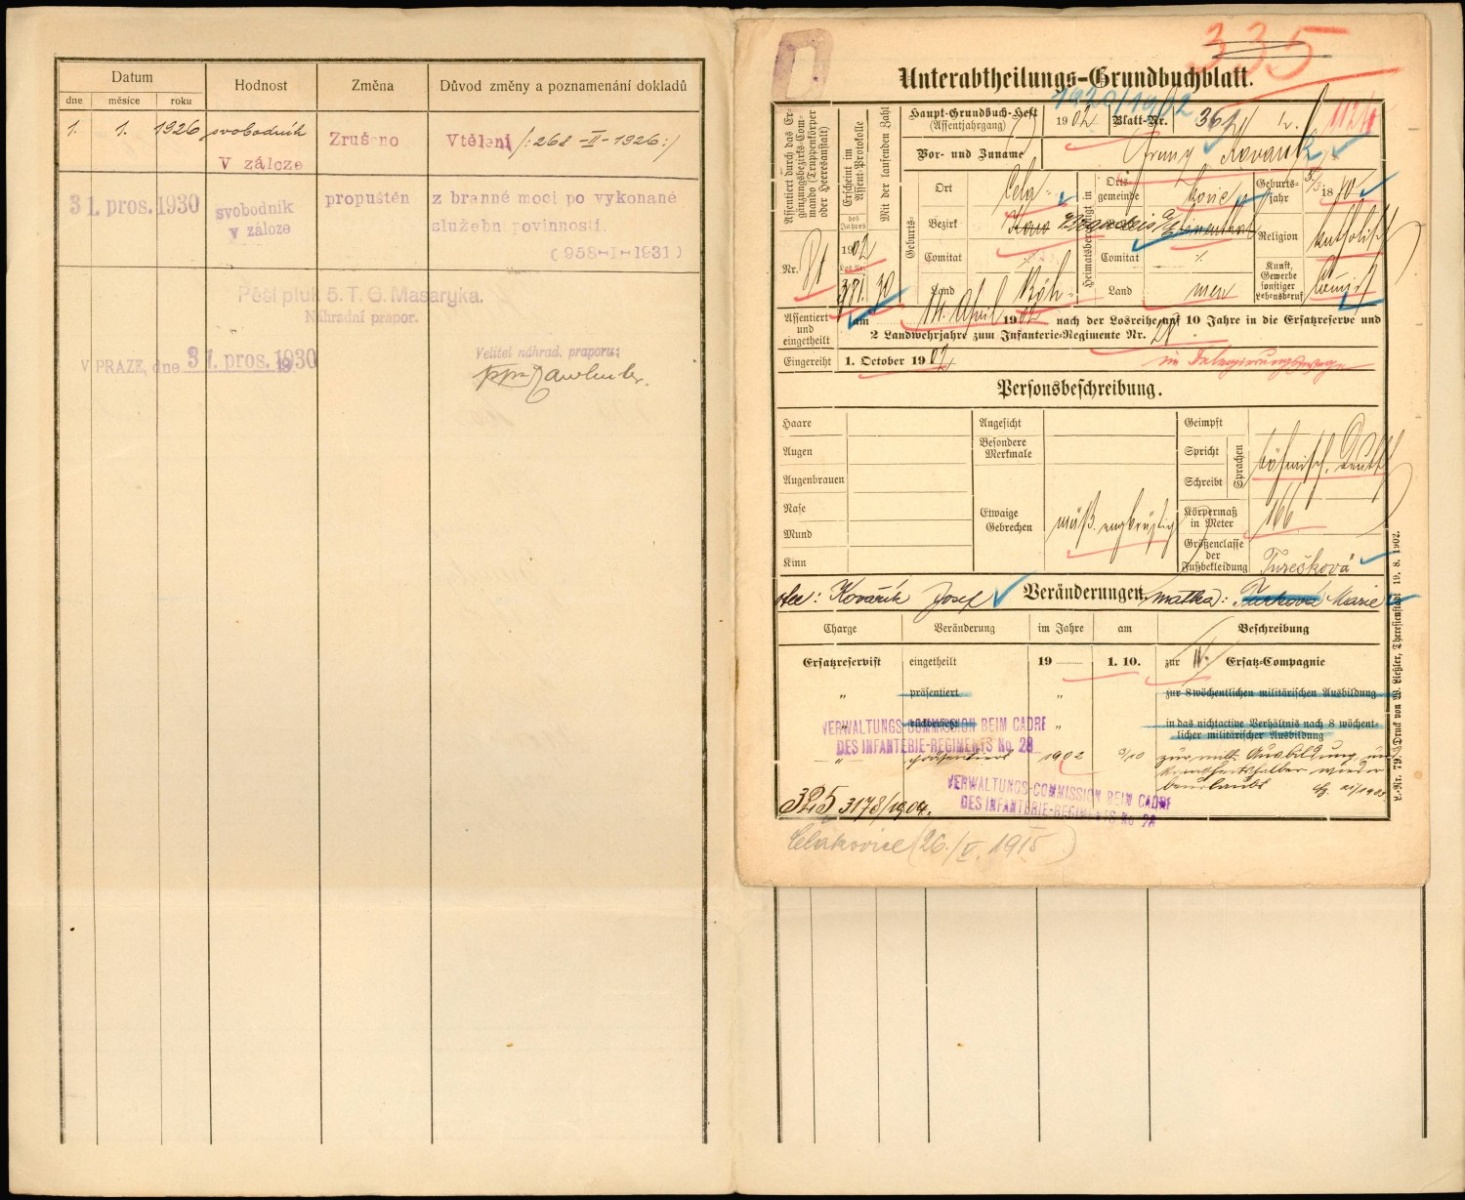 Datum
Hodnost
Změna
Důvod změny a poznamenání dokladů
dne
měsíce
roku
1. 1. 1926 svobodník Zrušeno Vtělení /:268-II-1926:/
V záloze
31. pros. 1930 svobodník v záloze propuštěn z branné moci po vykonané
služební povinnosti.
(958-I-1931)
Pěší pluk 5. T. G. Masaryka.
Náhradní prapor.
V PRAZE, dne 31. pros. 1930
Velitel náhrad. praporu:
335
Unterabtheilungs-Grundbuchblatt.
Assentiert durch das Ergänzungsbezirks-Commando (Truppenkörper oder Heeresanstalt)
Erscheint im Assent-Protokolle
des Jahres
Mit der laufenden Zahl
Haupt-Grundbuch-Heft
(Assentjahrgang)
1902
Blatt-Nr.
1124
Vor- und Zuname
Franz Kovařík
Geburts-
Ort
Heimatsberechtigt in
Ortsgemeinde
Geburtsjahr
18
Bezirk
Religion
katholisch
Comitat
Comitat
Kunst, Gewerbe sonstiger Lebensberuf
Land
Böh-
Land
men
Nr.
1902
Assentiert und eingetheilt
am 14. April 1902 nach der Losreihe auf 10 Jahre in die Ersatzreserve und
2 Landwehrjahre zum Infanterie-Regimente Nr. 28
Eingereiht
1. October 1902
Personsbeschreibung.
Haare
Angesicht
Geimpft
Augen
Besondere Merkmale
Spricht
Sprachen
böhmisch, deutsch
Augenbrauen
Schreibt
Nase
Etwaige Gebrechen
mäß. engbrüstig
Körpermaß in Meter
166
Mund
Größenclasse der Fußbekleidung
Kinn
Turečková
otec: Kovařík Josef
Veränderungen.
matka: Marie
Charge
Veränderung
im Jahre
am
Beschreibung
Ersatzreservist eingetheilt 19 — 1. 10. zur IV. Ersatz-Compagnie
„ präsentiert „ zur 8wöchentlichen militärischen Ausbildung
„ in das nichtactive Verhältnis nach 8 wöchent-
licher militärischer Ausbildung
VERWALTUNGS-COMMISSION BEIM CADRE
DES INFANTERIE-REGIMENTS No 28
„ präsentiert 1902 zur milit. Ausbildung und
krankheitshalber wieder
beurlaubt
VERWALTUNGS-COMMISSION BEIM CADRE
DES INFANTERIE-REGIMENTS No 28
325 3178/1904.
Čelakovice (26./V. 1915)
L.-Nr. 79. Druck von W. Ließler, Theresienstadt 19. 8. 1902.